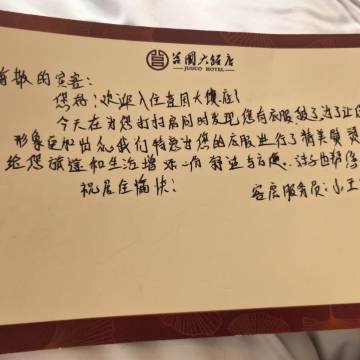 大饭店
JUGUO HOTEL
尊敬的宾客:
您好!欢迎入住莒国大饭店!
今天在为您打扫房间时发现您有衣服脏了,为了让您
形象更加出众,我们特意为您的衣服进行了精美熨
给您旅途和生活增添一份舒适与方便
祝居住愉快!
客房服务员:小王